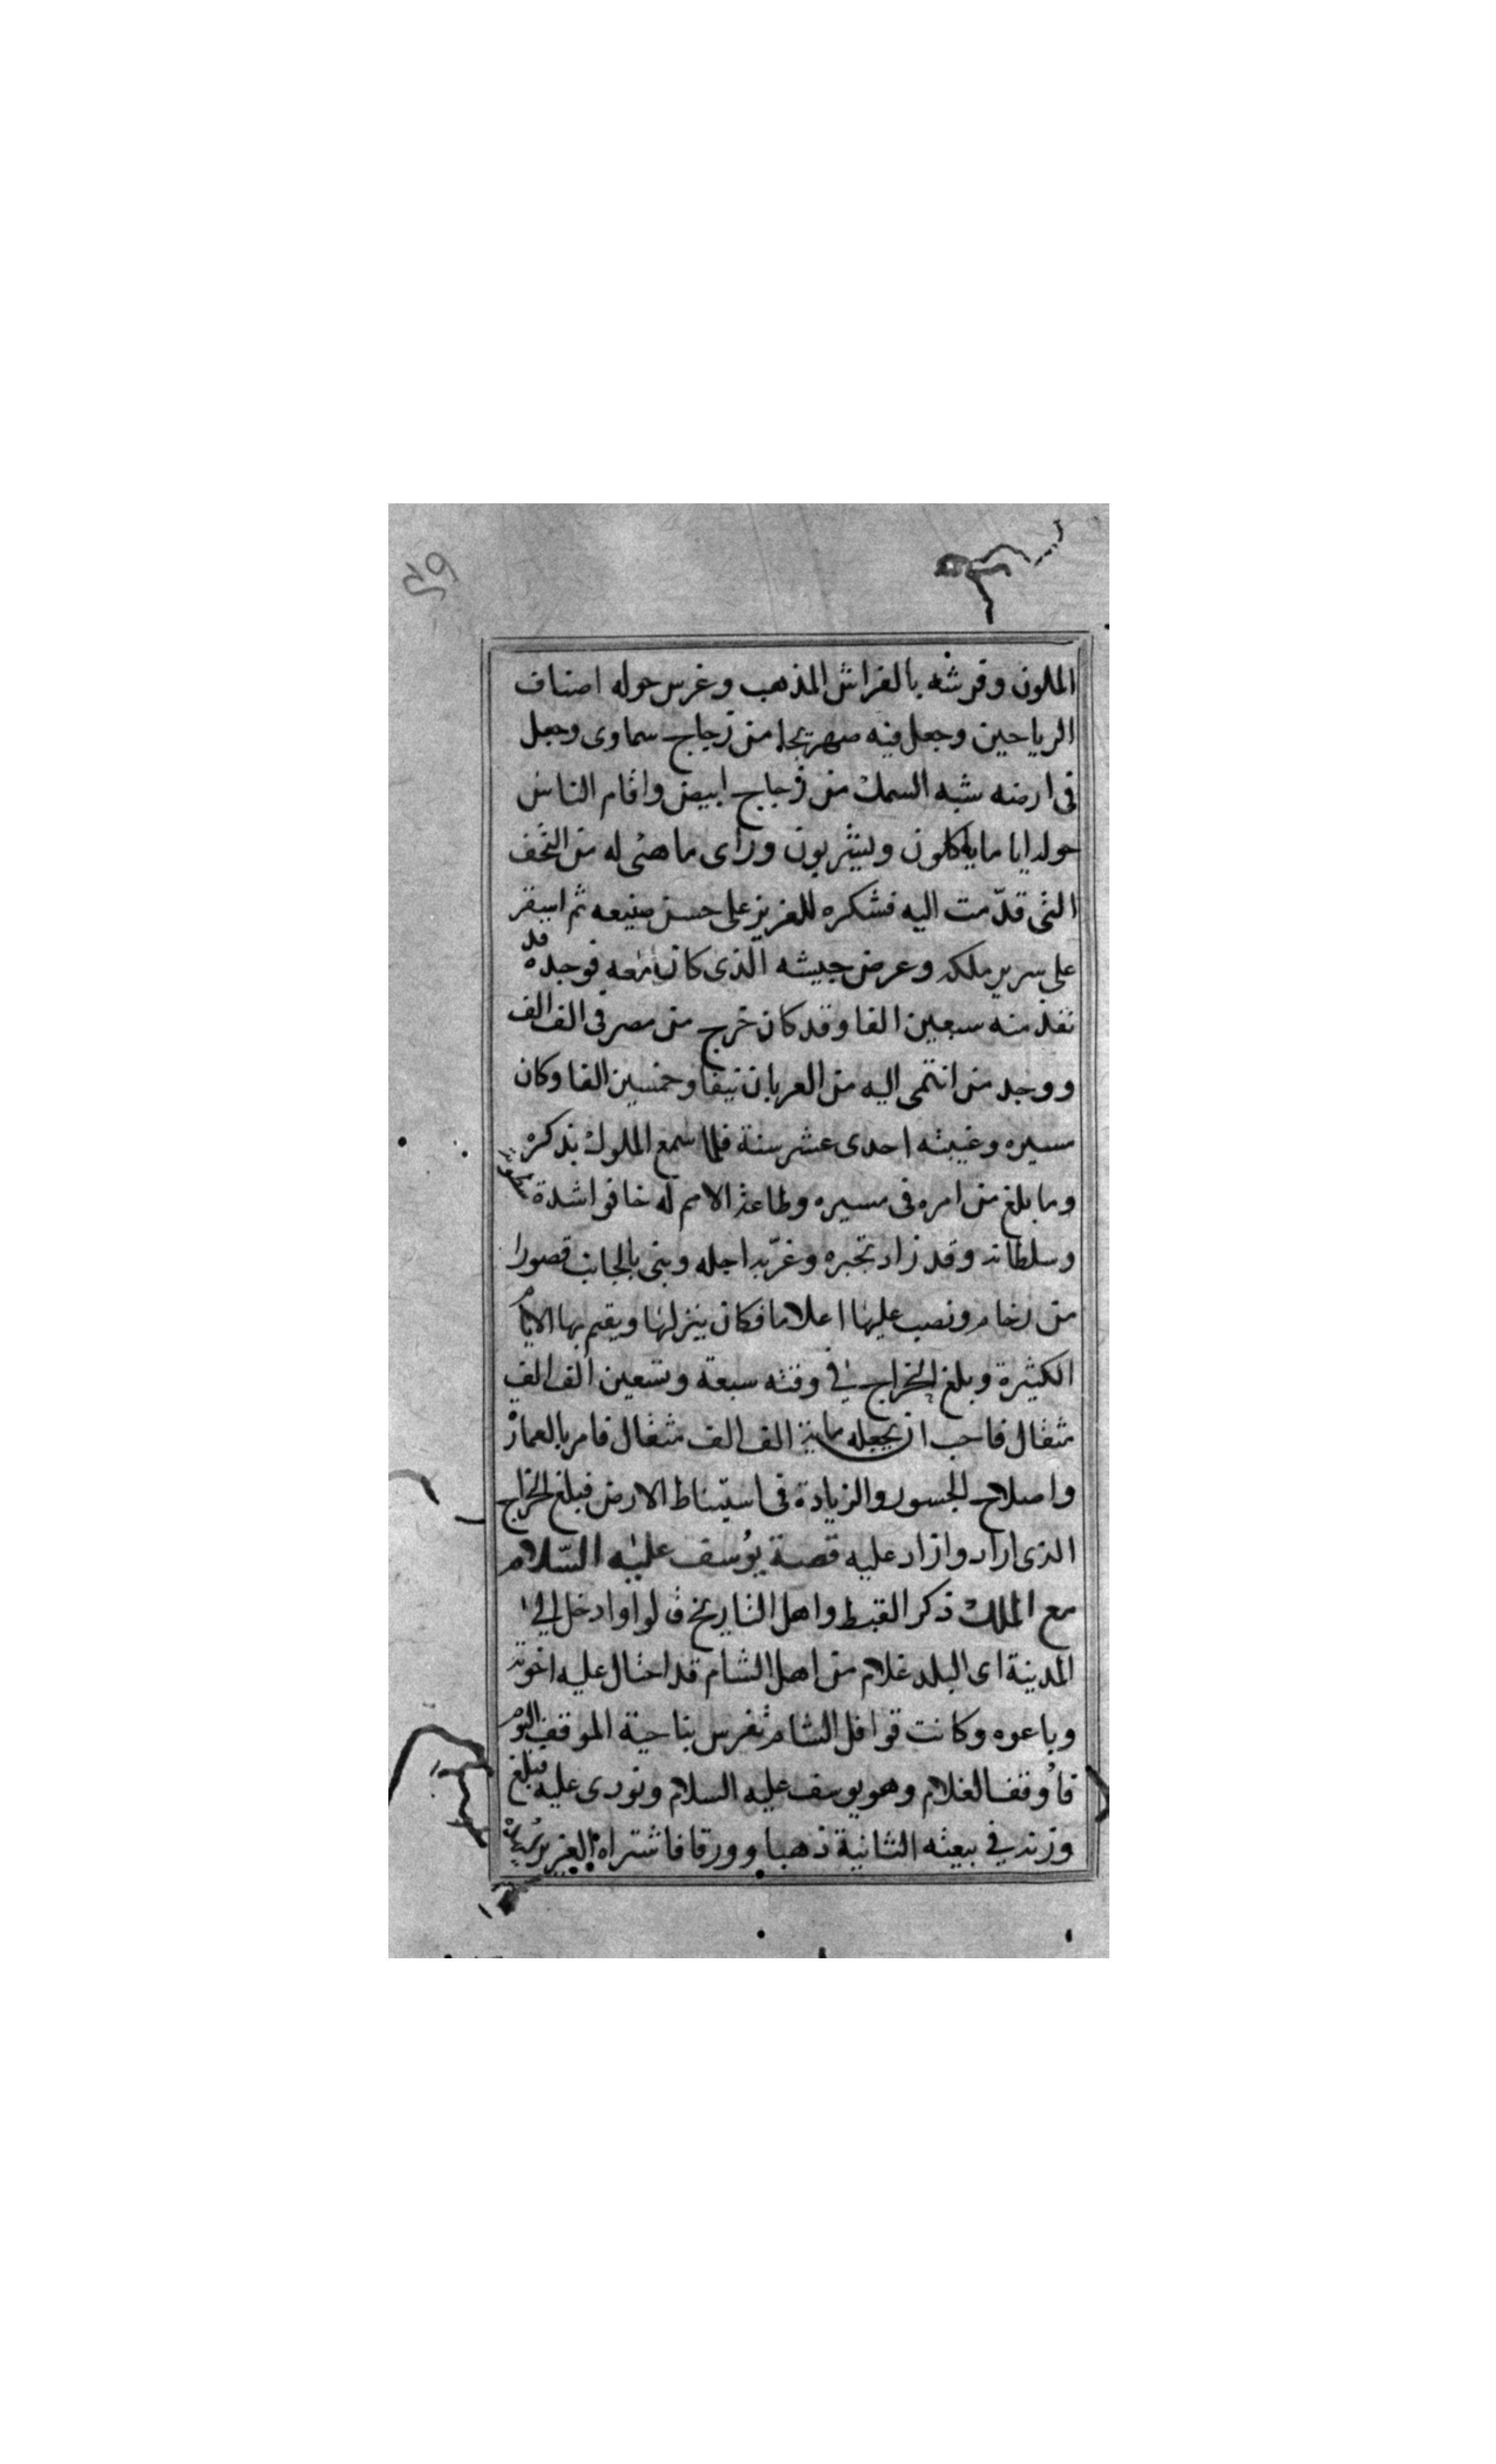 59
الملون وفرشه بالفراش المذهب وغرس حوله اصناف
الرياحين وجعل فيه صهريجا من زجاج سماوى وجعل
فى ارضه شبه السمك من زجاج ابيض واقام الناس
حوله اياما ياكلون ويشربون ورأى ما هئى له من التحف
التى قدّمت اليه فشكره للعزيز على حسن صنيعه ثم استقر
على سرير ملكه وعرض جيشه الذى كان معه فوجده قد
نفد منه سبعين الفا وقد كان خرج من مصر فى الف الف
ووجد من انتمى اليه من العربان نيفا وخمسين الفا وكان
مسيره وغيبته احدى عشر سنة فلما سمع الملوك بذكره
وما بلغ من امره فى مسيره وطاعة الامم له خافوا شدة
وسلطانه وقد زاد تجبره وغرّبه اجله وبنى بالجانب قصورا
من رخام ونصب عليها اعلاما فكان ينزلها ويقيم بها الايام
الكثيرة وبلغ الخراج فى وقته سبعة وتسعين الف الف
مثقال فاحب ان يجعله ماية الف الف مثقال فامر بالعمارة
واصلاح الجسور والزيادة فى استنباط الارض فبلغ الخراج
الذى اراد وازاد عليه قصة يوُسف عليه السّلام
مع الملك ذكر القبط واهل التاريخ قالوا وادخل الى
المدينة اى البلد غلام من اهل الشام قد احتال عليه اخوته
وباعوه وكانت قوافل الشام تعرس بناحية الموقف اليوم
فأوقف الغلام وهو يوسف عليه السلام ونودى عليه فبلغ
وزنه فى بيعته الثانية ذهبا وورقا فاشتراه العزيز